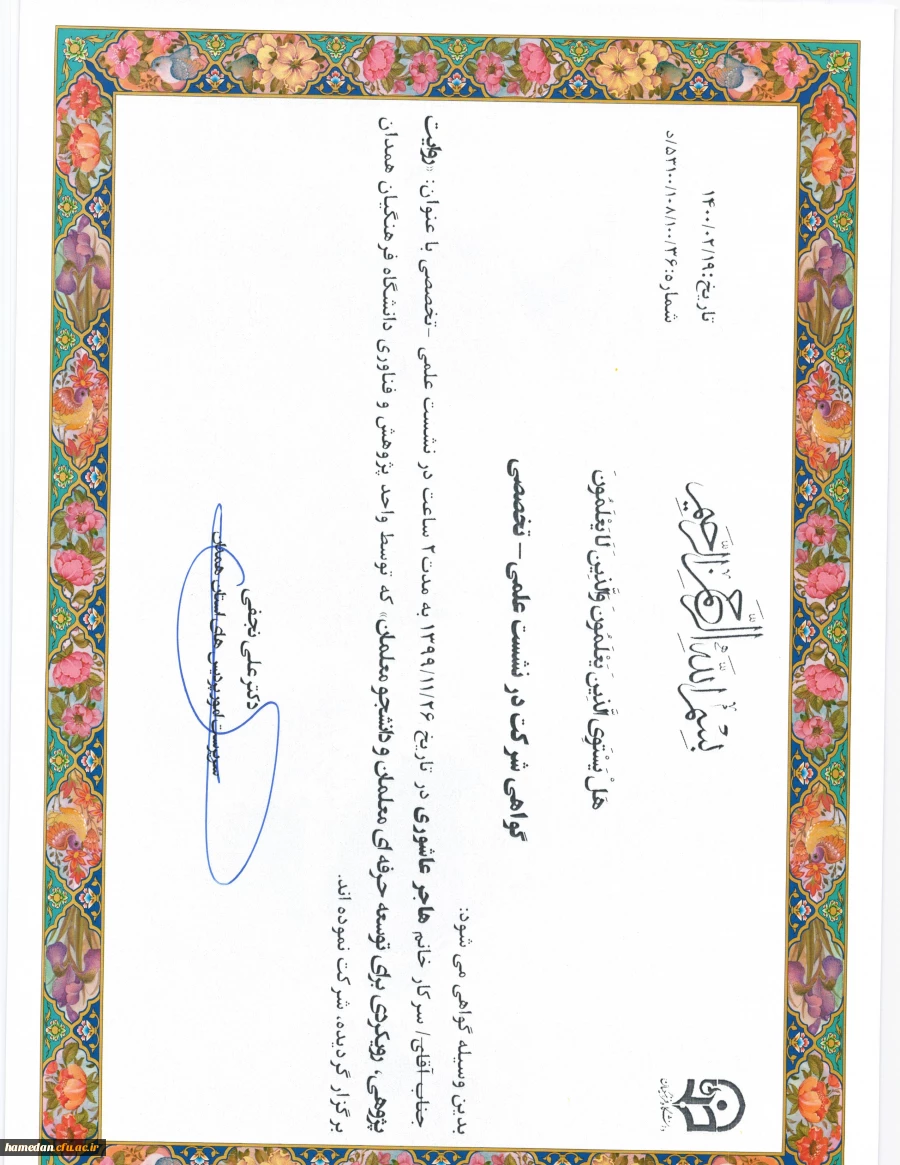 بسم الله الرحمن الرحیم
دانشگاه فرهنگیان
تاریخ: ۱۴۰۰/۰۲/۱۹
شماره: ۵۳۱۰۰/۱۰۸/۱۰۰/۳۶/د
هَلْ یَسْتَوِی الَّذِینَ یَعْلَمُونَ وَالَّذِینَ لَا یَعْلَمُونَ
گواهی شرکت در نشست علمی – تخصصی
بدین وسیله گواهی می شود:
جناب آقای/ سرکار خانم هاجر عاشوری در تاریخ ۱۳۹۹/۱۱/۲۶ به مدت ۲ ساعت در نشست علمی -تخصصی با عنوان: «روایت
پژوهی، رویکردی برای توسعه حرفه ای معلمان و دانشجو معلمان» که توسط واحد پژوهش و فناوری دانشگاه فرهنگیان همدان
برگزار گردیده، شرکت نموده اند.
دکتر علی نجفی
سرپرست امور پردیس های استان همدان
hamedan.cfu.ac.ir